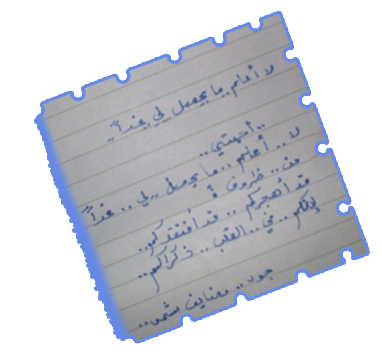 لا أعلم.. ما يحصل لي غداً..
..أحبتي..
لا.. أعلم.. ما يحصل.. لي.. غداً
من.. ظروف؟
قد أهجركم.. قد أفتقدكم..
لكن.. في.. القلب.. ذكراكم..